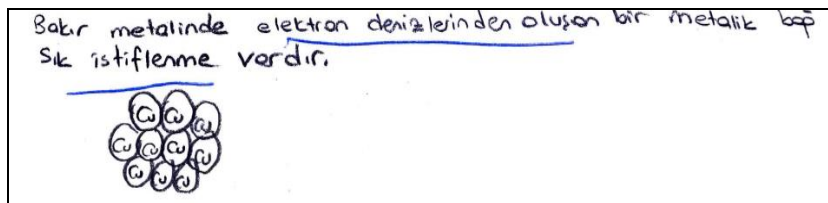 Bakır metalinde elektron denizlerinden oluşan bir metalik bağ
Sık istiflenme vardır.
Cu Cu Cu
Cu Cu Cu Cu
Cu Cu Cu